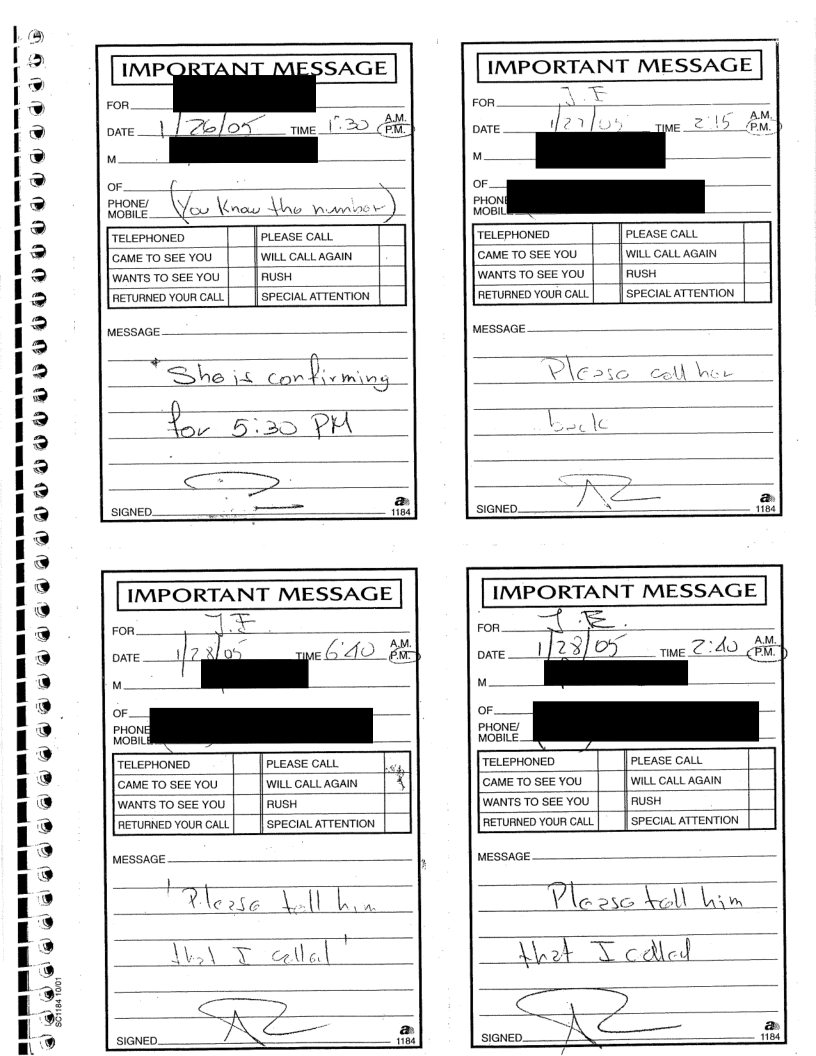 IMPORTANT MESSAGE
FOR
DATE 1/26/05 TIME 1:30 A.M. P.M.
M
OF
PHONE/ MOBILE (You Know the number)
TELEPHONED PLEASE CALL
CAME TO SEE YOU WILL CALL AGAIN
WANTS TO SEE YOU RUSH
RETURNED YOUR CALL SPECIAL ATTENTION
MESSAGE
She is confirming
for 5:30 PM
SIGNED
a 1184
IMPORTANT MESSAGE
FOR J.E
DATE 1/27/05 TIME 2:15 A.M. P.M.
M
OF
PHONE MOBIL
TELEPHONED PLEASE CALL
CAME TO SEE YOU WILL CALL AGAIN
WANTS TO SEE YOU RUSH
RETURNED YOUR CALL SPECIAL ATTENTION
MESSAGE
Please call her
back
SIGNED
a 1184
IMPORTANT MESSAGE
FOR J.E
DATE 1/28/05 TIME 6:40 A.M. P.M.
M
OF
PHONE MOBILE
TELEPHONED PLEASE CALL
CAME TO SEE YOU WILL CALL AGAIN
WANTS TO SEE YOU RUSH
RETURNED YOUR CALL SPECIAL ATTENTION
MESSAGE
"Please tell him
that I called"
SIGNED
a 1184
IMPORTANT MESSAGE
FOR J.E.
DATE 1/28/05 TIME 2:40 A.M. P.M.
M
OF
PHONE/ MOBILE
TELEPHONED PLEASE CALL
CAME TO SEE YOU WILL CALL AGAIN
WANTS TO SEE YOU RUSH
RETURNED YOUR CALL SPECIAL ATTENTION
MESSAGE
Please tell him
that I called
SIGNED
a 1184
SC1184 10/01